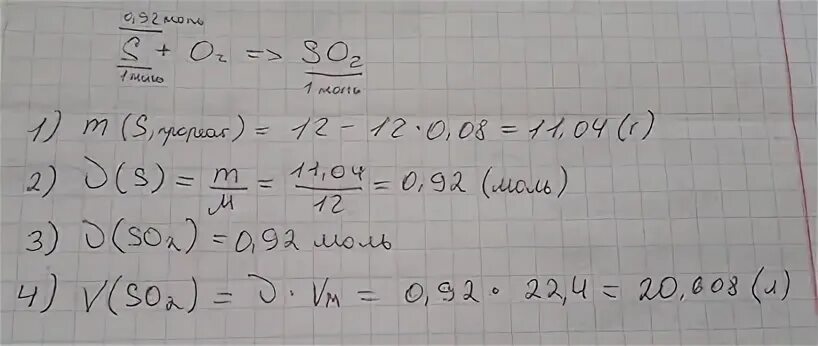 0,92 моль
S + O₂ => SO₂
1 моль 1 моль
1) m (S, прореаг) = 12 - 12·0,08 = 11,04 (г)
2) ν(S) = m/M = 11,04/12 = 0,92 (моль)
3) ν(SO₂) = 0,92 моль
4) V(SO₂) = ν · Vm = 0,92 · 22,4 = 20,608 (л)